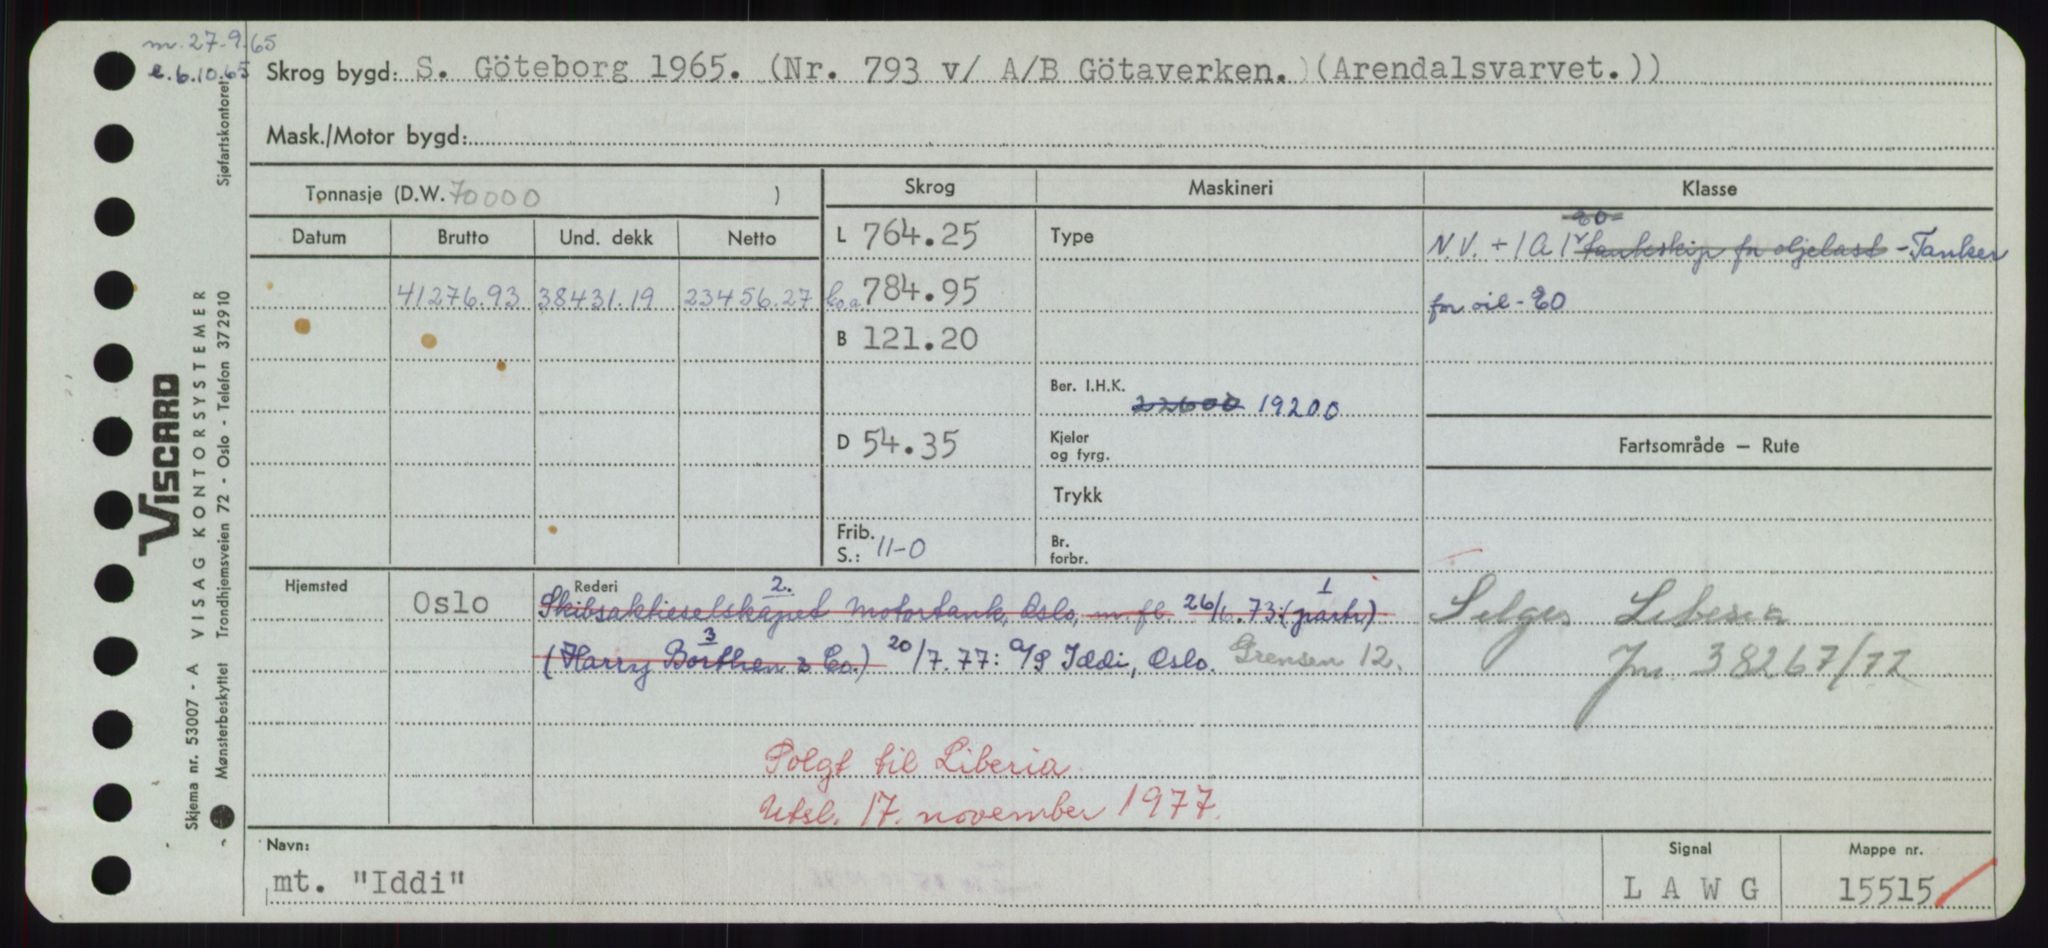 m. 27.9.65
e. 6.10.65
Skrog bygd: S. Göteborg 1965. (Nr. 793 v/ A/B Götaverken. (Arendalsvarvet.))
Mask./Motor bygd:
Tonnasje (D.W. 70000 )
Skrog Maskineri Klasse
Datum Brutto Und. dekk Netto
41276.93 38431.19 23456.27
L 764.25
784.95
B 121.20
D 54.35
Frib. S.: 11-0
Type
Ber. I.H.K.
22600 19200
Kjeler og fyrg.
Trykk
Br. forbr.
E0
N.V. + 1A1 tankskip for oljelast - Tanker
for oil - E0
Fartsområde — Rute
Selges Liberia
Jnr. 38267/77
Hjemsted
Oslo
Rederi 2. 1
Skibsaksieselskapet Motortank, Oslo, m.fl. 26/6.73: (partr)
3
(Harry Borthen & Co.) 20/7.77: A/S Iddi, Oslo. Grensen 12.
Solgt til Liberia
Utsl. 17. november 1977.
Navn:
mt. "Iddi"
Signal
L A W G
Mappe nr.
15515
VISCARD
Skjema nr. 53007 - A VISAG KONTORSYSTEMER
Mønsterbeskyttet Trondhjemsveien 72 - Oslo - Telefon 372910
Sjøfartskontoret